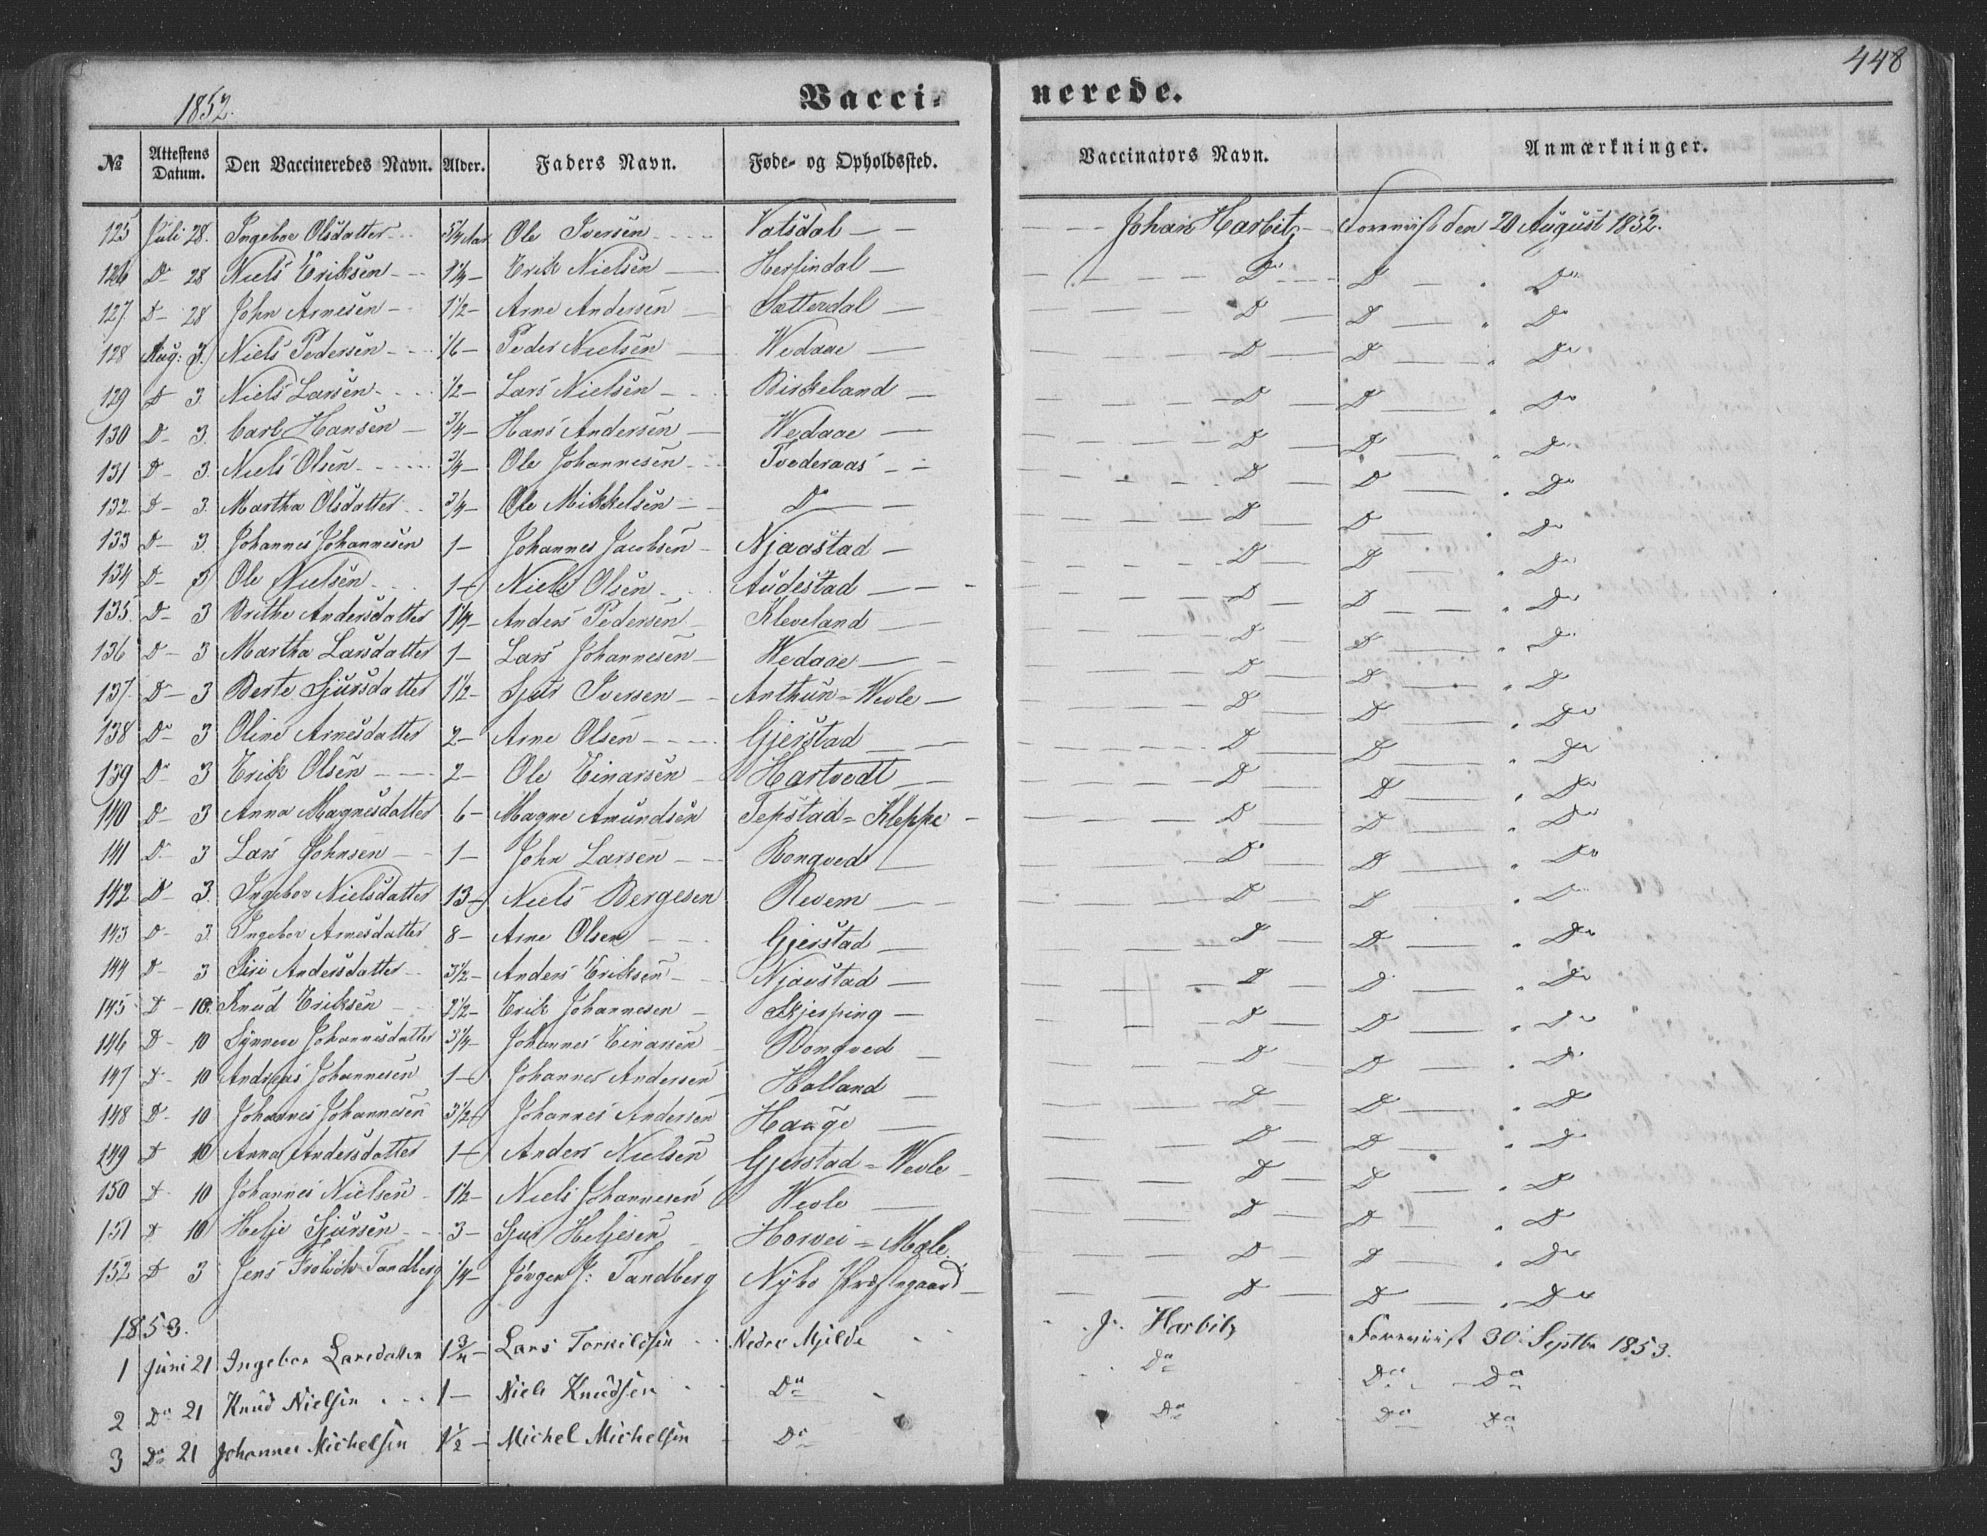 448
1852.
Vacci- nerede.
№ Attestens Datum. Den Vaccineredes Navn. Alder. Faders Navn. Føde- og Opholdssted. Vaccinators Navn. Anmærkninger.
125 Juli 28. Ingebor Olsdatter 3/4 Aar Ole Iversen Vatsdal Johan Harbitz Foreviist den 20 August 1852.
126 Do 28 Niels Eriksen 1 1/4 Erik Nielsen Herfindal Do Do Do
127 Do 28 John Arnesen 1 1/2 Arne Andersen Sætterdal Do Do Do
128 Aug: 3. Niels Pedersen 1/6 Peder Nielsen Wedaae Do Do Do
129 Do 3 Niels Larsen 1/2 Lars Nielsen Birkeland Do Do Do
130 Do 3. Carl Hansen 3/4 Hans Andersen Wedaae Do Do Do
131 Do 3. Niels Olsen 3/4 Ole Johannesen Tvederaas Do Do Do
132 Do 3. Martha Olsdatter 3/4 Ole Mikkelsen Do Do Do Do
133 Do 3. Johannes Johannesen 1 Johannes Jacobsen Njaastad Do Do Do
134 Do 3 Ole Nielsen 1 Niels Olsen Audestad Do Do Do
135 Do 3 Brithe Andersdatter 1 1/4 Anders Pedersen Kleveland Do Do Do
136 Do 3 Martha Larsdatter 1 Lars Johannesen Wedaae Do Do Do
137 Do 3 Berte Sjursdatter 1 1/2 Sjur Iversen Anthun = Wevle Do Do Do
138 Do 3 Oline Arnesdatter 2 Arne Olsen Gjerstad Do Do Do
139 Do 3 Erik Olsen 2 Ole Einarsen Hartvedt Do Do Do
140 Do 3 Anna Magnesdatter 6 Magne Amundsen Tepstad = Kleppe Do Do Do
141 Do 3 Lars Johnsen 1 John Larsen Rongved Do Do Do
142 Do 3. Ingebor Nielsdatter 13 Niels Bergesen Revem Do Do Do
143 Do 3. Ingebor Arnesdatter 8 Arne Olsen Gjerstad Do Do Do
144 Do 3 Siri Andersdatter 3 1/2 Anders Eriksen Njaastad Do Do Do
145 Do 10 Knud Eriksen 2 1/2 Erik Johannesen Skjerping Do Do Do
146 Do 10 Synneve Johannesdatter 3 3/4 Johannes Einarsen Rongved Do Do Do
147 Do 10 Andreas Johannesen 1 Johannes Andersen Halland Do Do Do
148 Do 10 Johannes Johannesen 3 1/2 Johannes Andersen Hauge Do Do Do
149 Do 10 Anna Andersdatter 1 Anders Nielsen Gjerstad = Wevle Do Do Do
150 Do 10 Johannes Nielsen 1 1/2 Niels Johannesen Wevle Do Do Do
151 Do 10 Helje Sjursen 3 Sjur Heljesen Mæle Do Do Do
152 Do 3 Jens Frolich Tandberg 1/4 Jörgen J: Tandberg Præstegaard Do Do Do
1853.
1 Juni 21 Ingebor Larsdatter 1 3/4 Lars Torkildsen Nedre Mjelde J. Harbitz Foreviist 30 Septbr 1853.
2 Do 21 Knud Nielsen 1 Niels Knudsen Do Do Do Do
3 Do 21 Johannes Michelsen 1 1/2 Michel Michelsen Do Do Do Do